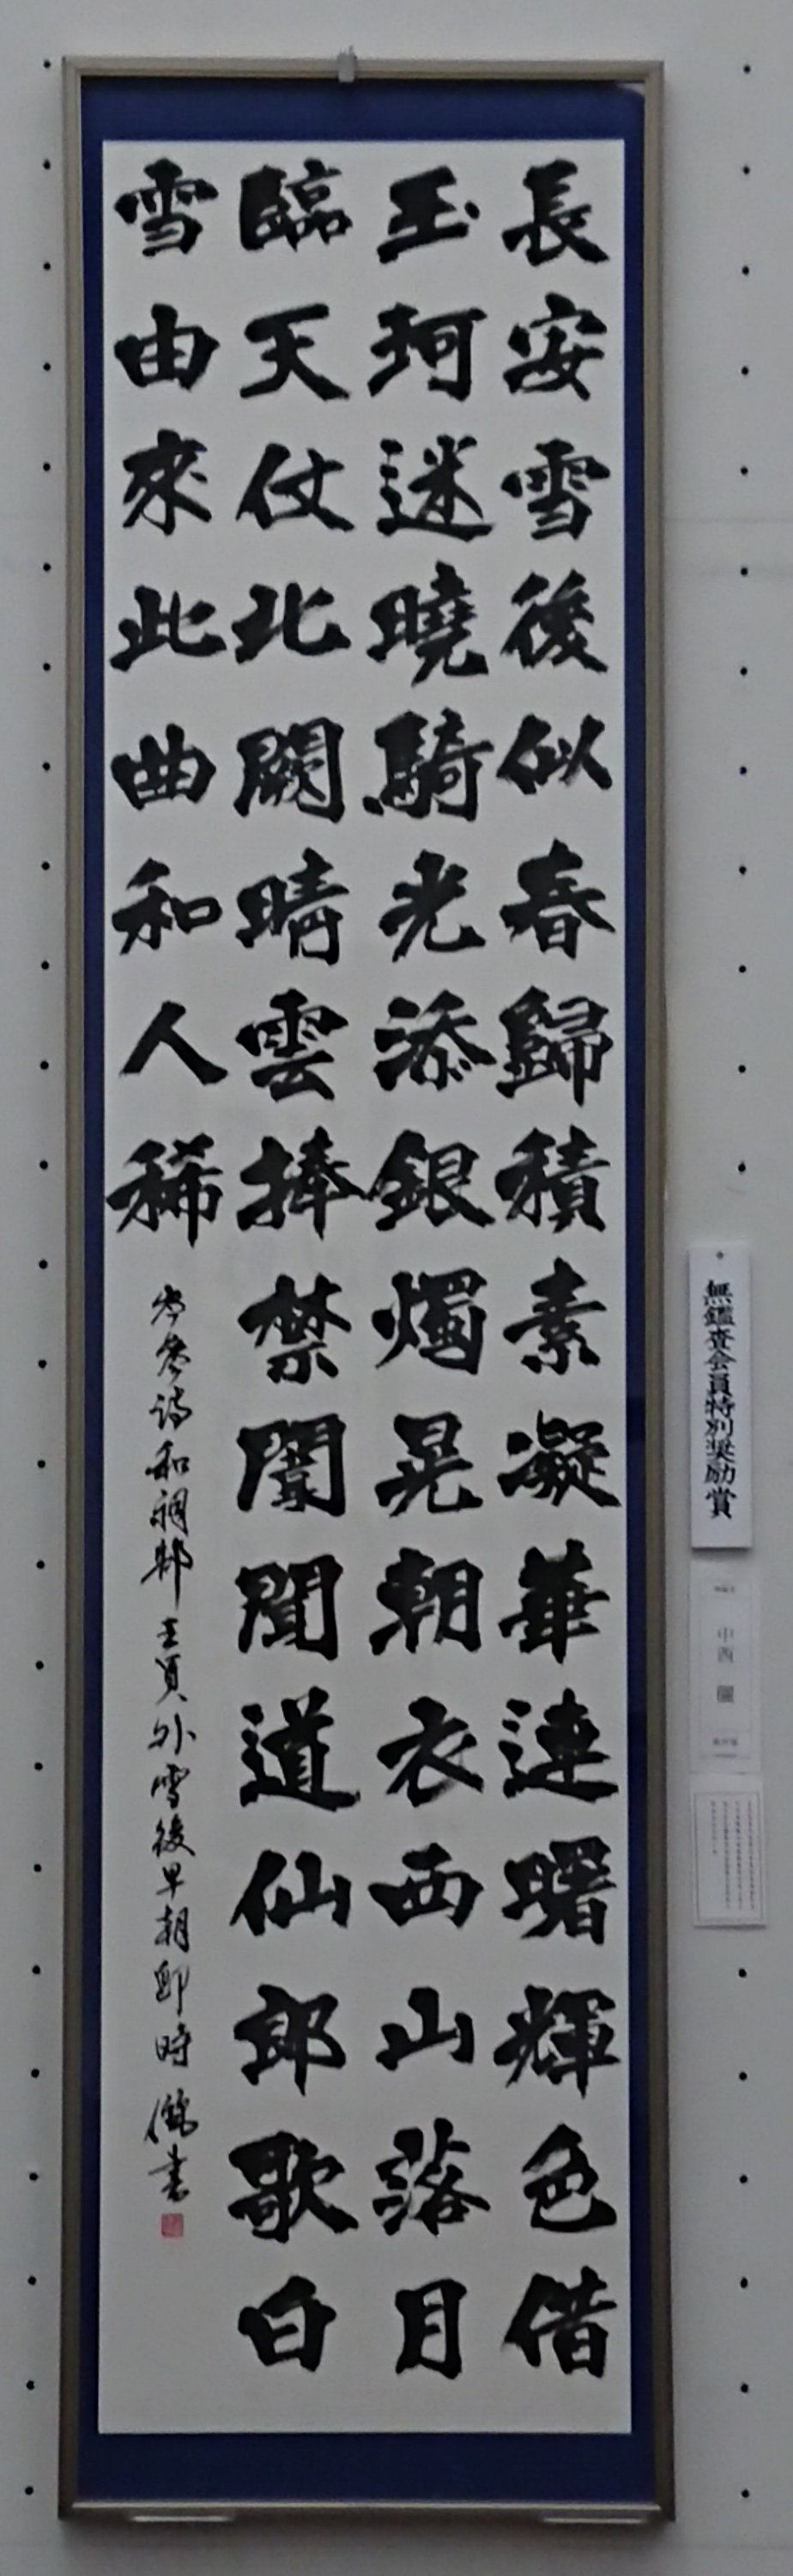 長安雪後似春歸積素凝華連曙輝色借
玉珂迷曉騎光添銀燭晃朝衣西山落月
臨天仗北闕晴雲捧禁闈聞道仙郎歌白
雪由來此曲和人稀
岑參詩和祠部王員外雪後早朝即時 書
無鑑査会員特別奨励賞
中西